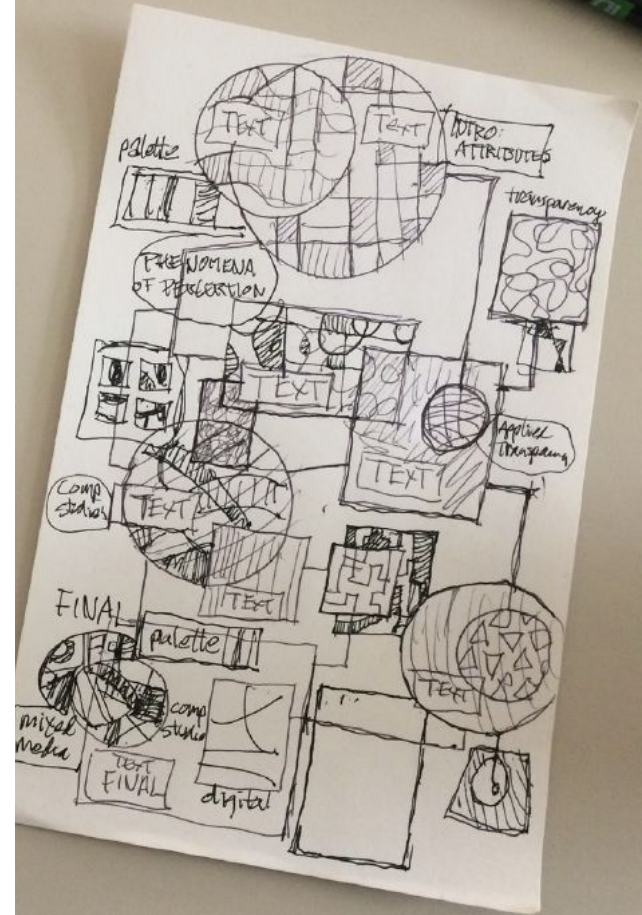 TEXT
TEXT
INTRO:
ATTRIBUTES
palette
transparency
PHENOMENA
OF PERCEPTION
TEXT
TEXT
Applied
Transparency
Comp
Studies
TEXT
TEXT
FINAL
palette
TEXT
comp
studio
mixed
media
TEXT
FINAL
digital